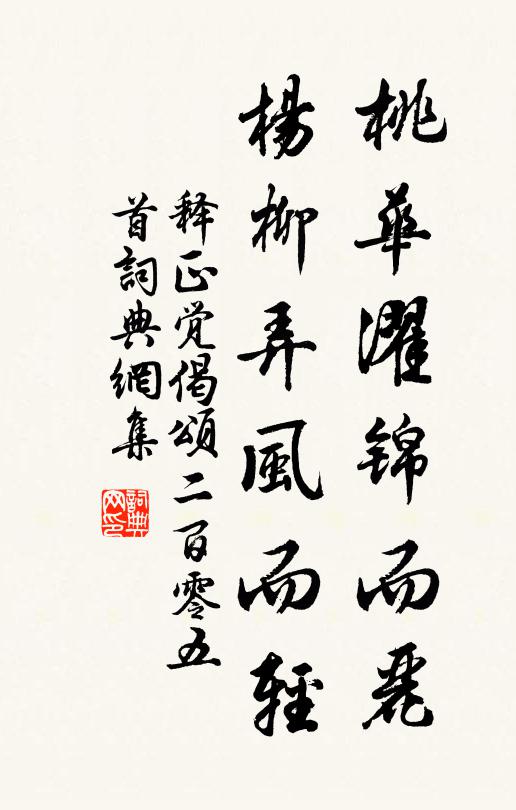 桃華濯錦而麗
楊柳弄風而輕
释正觉偈頌二百零五
首詞典網集
詞典网印